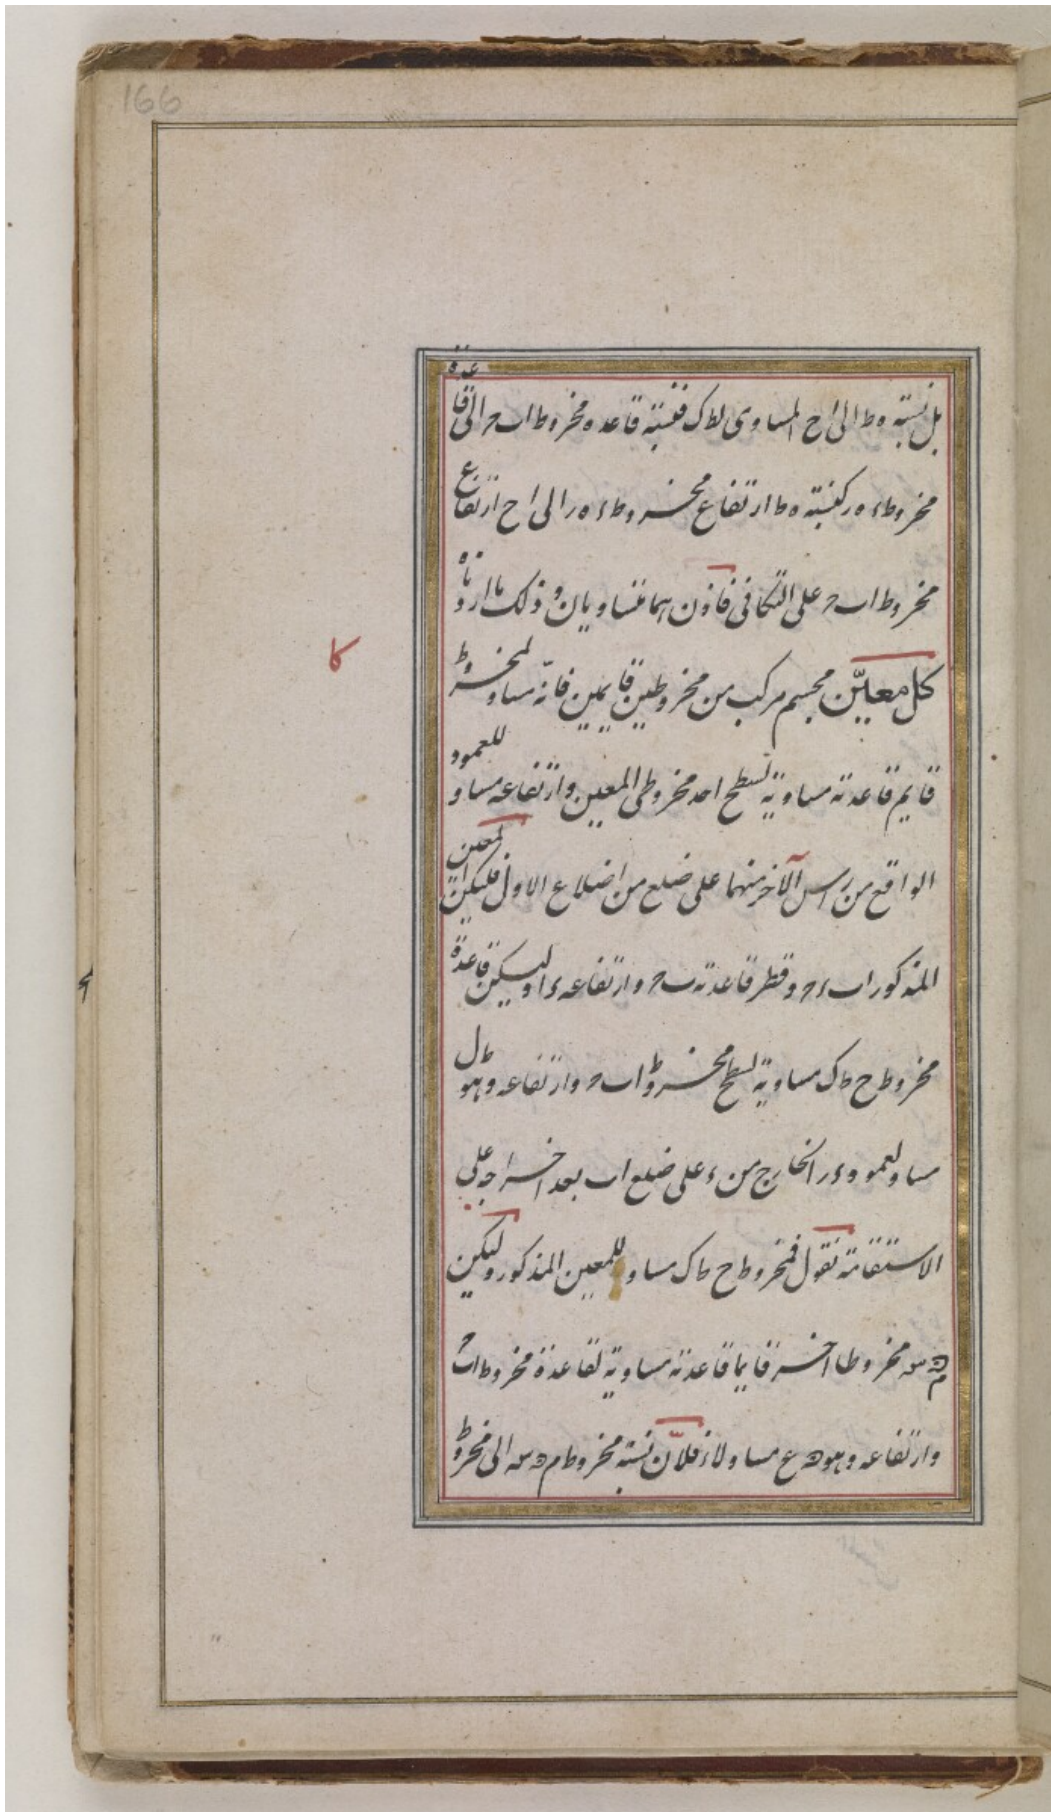 166
بل نسبة ه ط الى ا ح المساوى لط ك فنسبة قاعده مخروط ا ب ح الى قاعدة
مخروط ء ه ر كنسبة ه ط ارتفاع مخروط ء ه ر الى ا ح ارتفاع
مخروط ا ب ح على التكافى فاذن هما متساويان وذلك ما اردناه
كا
كل معيّن مجسم مركب من مخروطين قايمين فانّه مساو لمخروط
قايم قاعدته مساوية لسطح احد مخروطى المعين وارتفاعه مساو للعمود
الواقع من راس الآخر منهما على ضلع من اضلاع الاول فليكن المعين
المذكور ا ب ء ح وقطر قاعدته ب ح وارتفاعه ء ا وليكن قاعدة
مخروط ح ط ك مساوية لسطح مخروط ا ب ح وارتفاعه وهو ط ل
مساو لعمود ء ر الخارج من ء على ضلع ا ب بعد اخراجه على
الاستقامة نقول فمخروط ح ط ك مساو للمعين المذكور وليكن
م ں س مخروطا آخر قايما قاعدته مساوية لقاعدة مخروط ا ب ح
وارتفاعه وهو ں ع مساو لا ء فلانّ نسبة مخروط م ں س الى مخروط